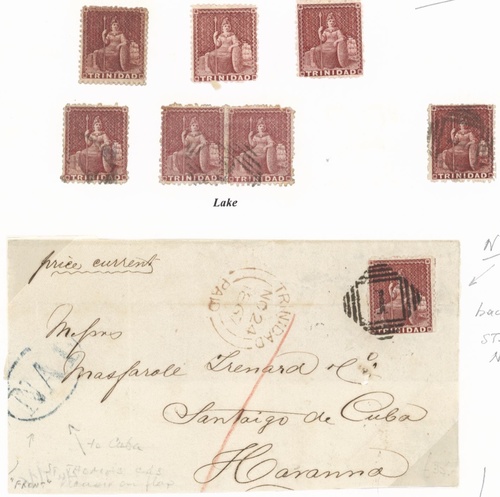 TRINIDAD TRINIDAD TRINIDAD
TRINIDAD TRINIDAD TRINIDAD TRINIDAD
Lake
price current
TRINIDAD
NO 24
PAID
TRINIDAD
Messrs
Masfarole Trenard & Co.
Santaigo de Cuba
Havanna
NA
to Cuba
N
bac
ST
N